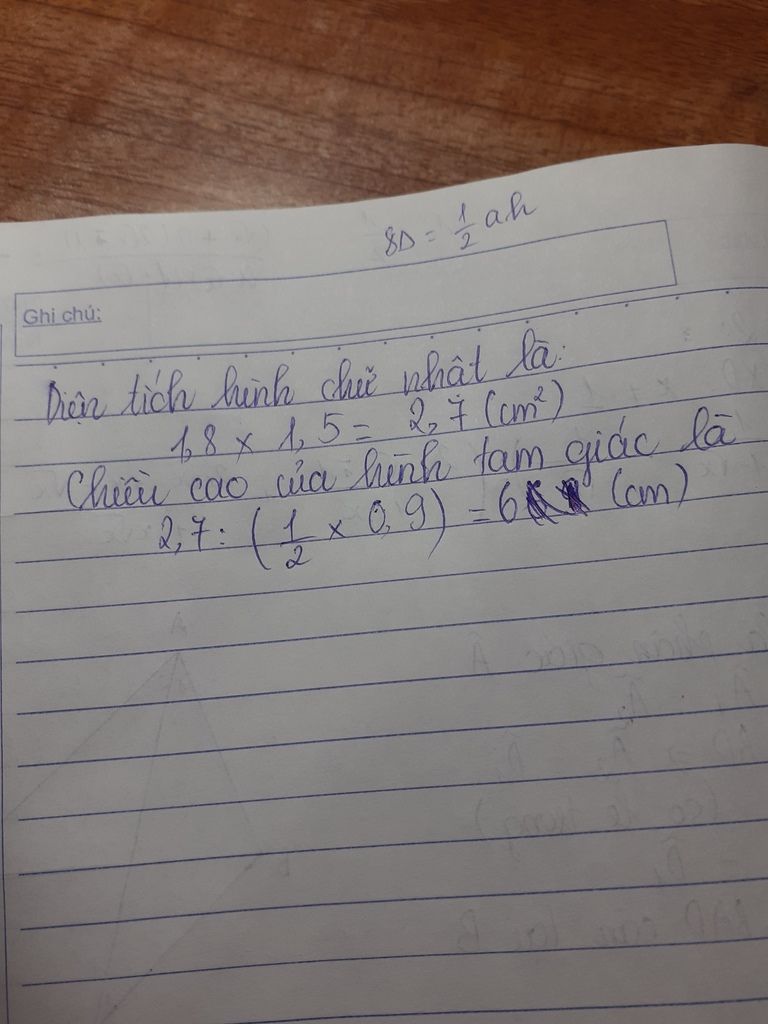 SΔ = 1/2 ah
Ghi chú:
Diện tích hình chữ nhật là:
1,8 × 1,5 = 2,7 (cm²)
Chiều cao của hình tam giác là
2,7 : (1/2 × 0,9) = 6 (cm)